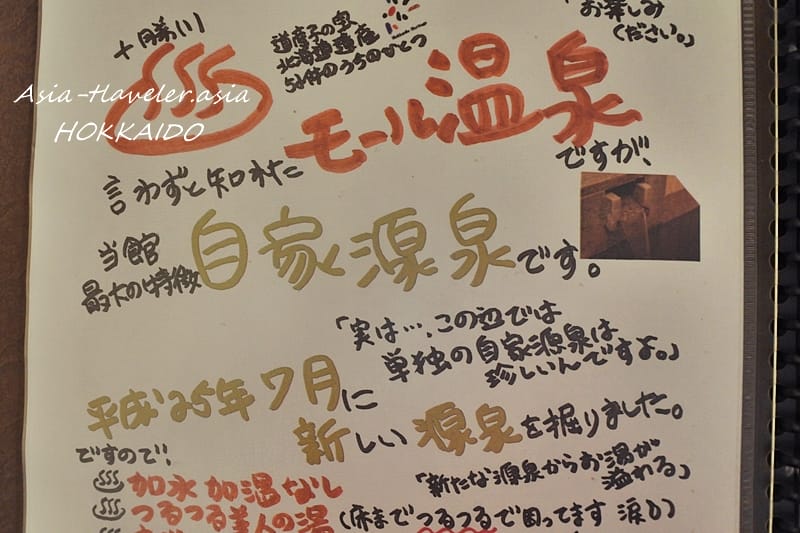 お楽しみ
ください。」
十勝川
道産子の宝
北海道遺産
52件のうちのひとつ
Asia-Traveler.asia
HOKKAIDO
モール温泉
言わずと知れた
ですが、
当館
最大の特徴
自家源泉です。
「実は…、この辺では
単独の自家源泉は
珍しいんですよ。」
平成25年7月に
新しい源泉を掘りました。
ですので!
「新たな源泉からお湯が
溢れる」
加水加温なし
つるつる美人の湯
(床までつるつるで困ってます 涙)